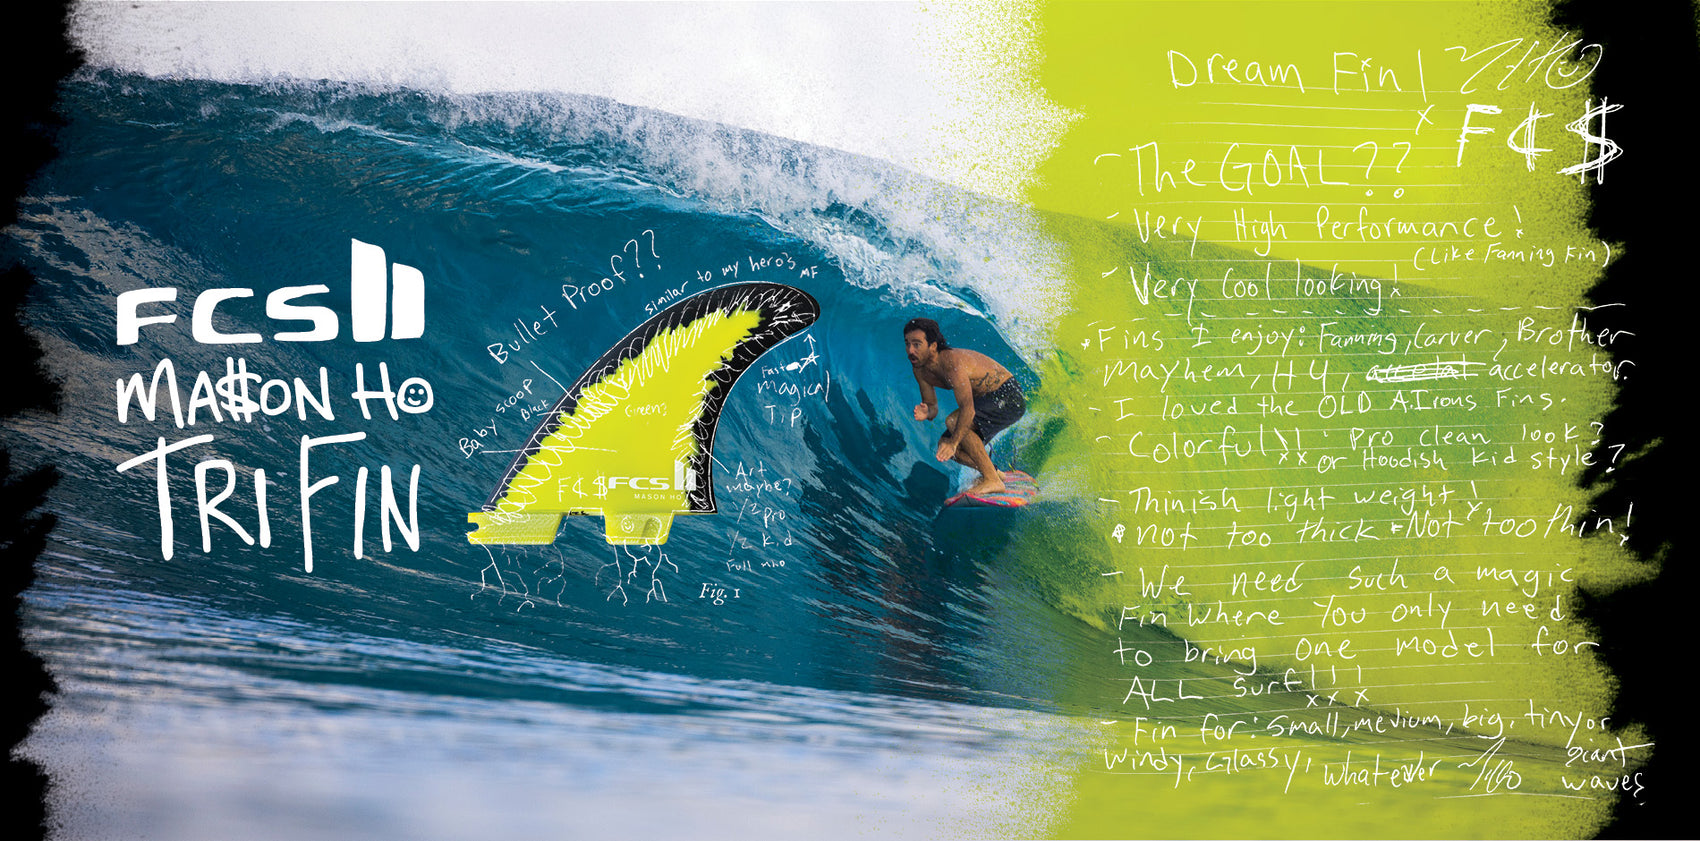 FCS II
MA$ON HO
TRI FIN
Bullet Proof??
similar to my hero's MF
Baby scoop
Black
Green?
Fast
magical
Tip
F¢$ FCS II
MASON HO
Art
maybe?
1/2 pro
1/2 kid
Full
Fig. 1
Dream Fin!
x F¢$
- The GOAL??
- Very High Performance!
(Like Fanning Fin)
- Very Cool looking!
Fins I enjoy: Fanning, Carver, Brother
Mayhem, H4, accelerator.
- I loved the OLD A.Irons Fins.
- Colorful!! Pro clean look?
or Hoodish kid style?
- Thinish light weight!
not too thick Not too thin!
- We need such a magic
Fin where You only need
to bring one model for
ALL surf!!!
- Fin for: small, medium, big, tiny or giant
windy, Glassy, whatever waves